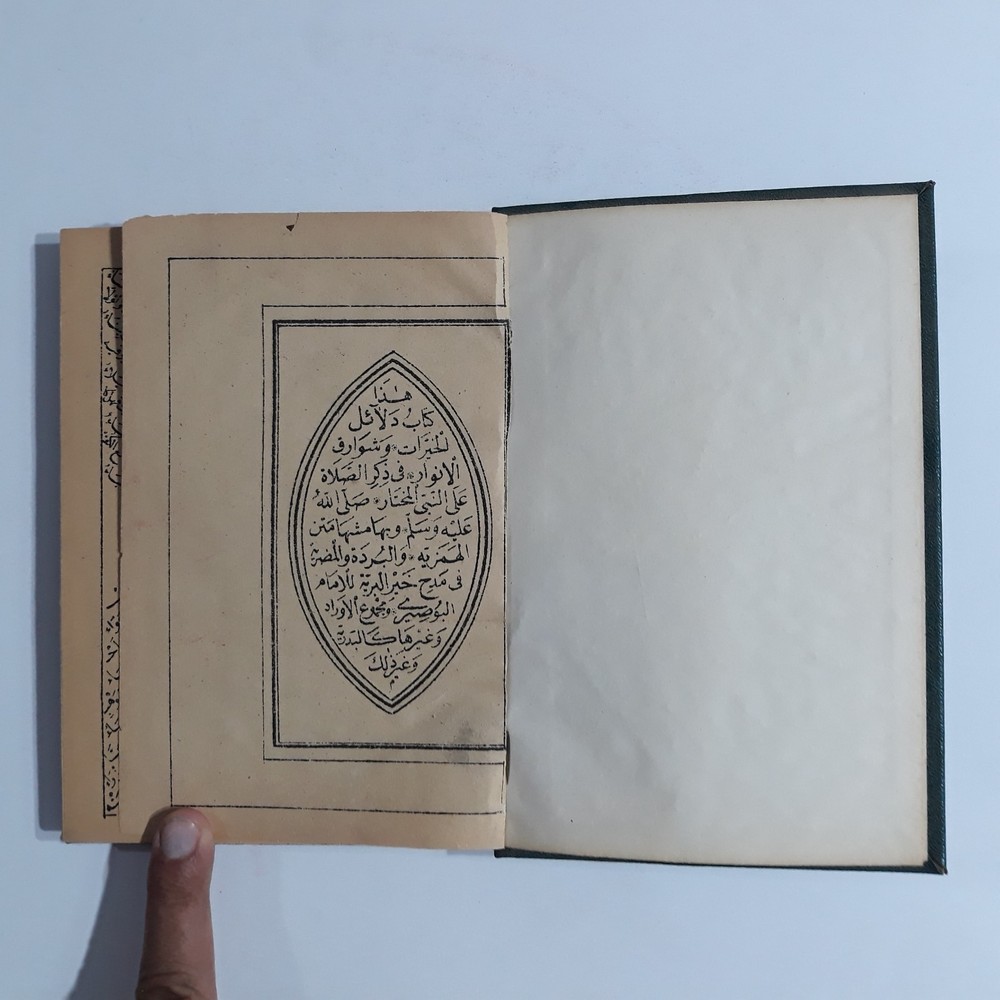 هٰذَا
كتابُ دَلَائِل
الخَيْرَات وَشَوَارِق
الأنوار فى ذِكرِ الصَّلَاة
عَلَى النَّبِىِّ المُختَار صَلَّى اللهُ
عَلَيْهِ وَسَلَّم وبهامشها مَتن
الهَمَزية والبُردَة والمُضَرية
فى مَدْحِ خَيْرِ البَرِيَّة لِلإمام
البُوصِيرى ومجموع الأوراد
وَغَيْرهَا كالبَدْرِيَّة
وَغَيْر ذٰلِكَ
م